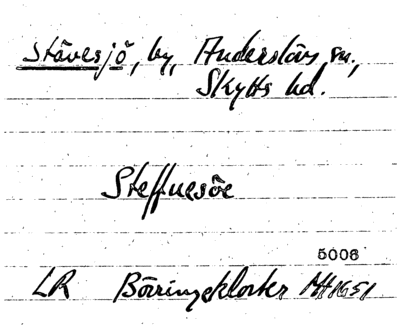 Stävesjö, by, Anderslövs sn.,
Skytts hd.
Steffuesöe
5006
LR Börringekloster MH 1651